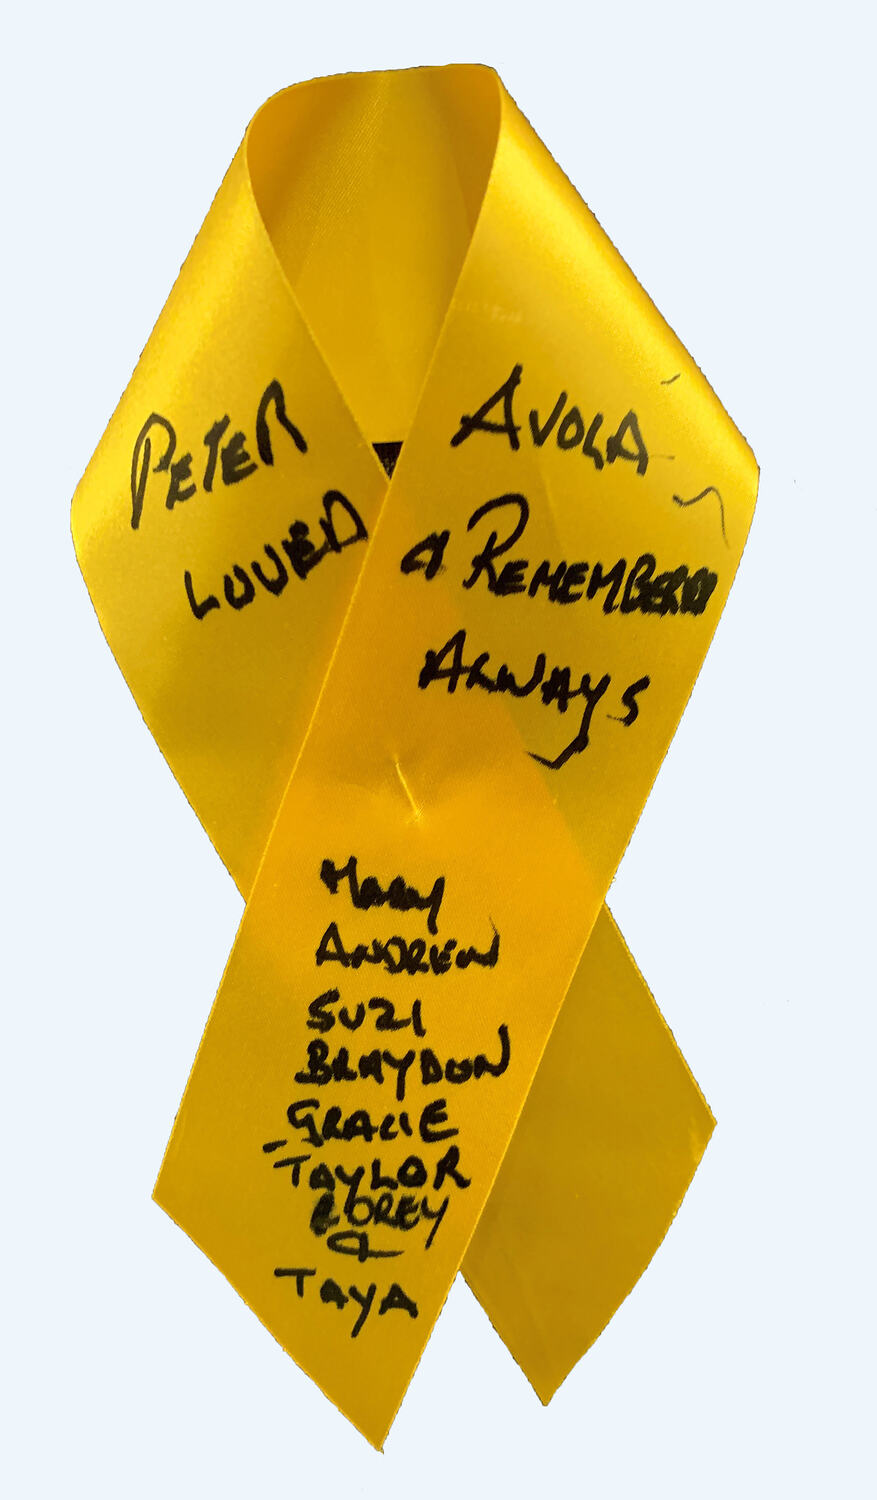 PETER AVOLA
LOVED & REMEMBERED
ALWAYS
Mary
ANDREW
SUZI
BRAYDON
GRACIE
TAYLOR
COREY
&
TAYA